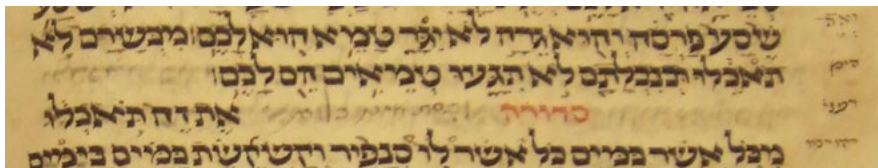 שסע פרסה והוא גרה לא יגר טמא הוא לכם מבשרם לא
תאכלו ובנבלתם לא תגעו טמאים הם לכם
סדורה את זה תאכלו
מכל אשר במים כל אשר לו סנפיר וקשקשת במים בימים